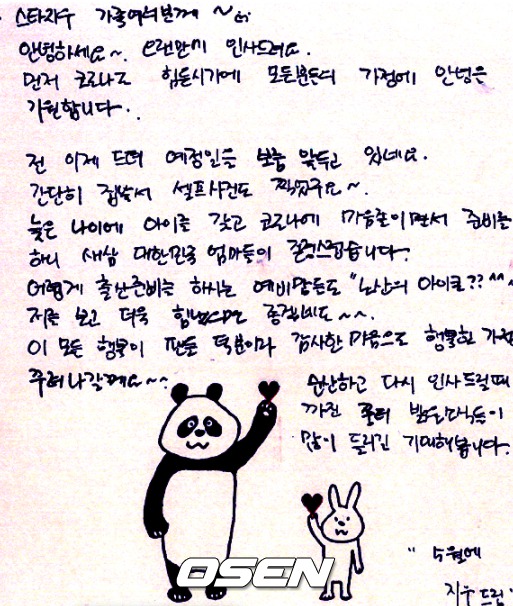 스타지우 가족여러분께 ~
안녕하세요~. 오랜만에 인사드려요.
먼저 코로나로 힘든시기에 모든분들의 가정에 안녕을
기원합니다.
전 이제 드뎌 예정일을 보름 앞두고 있네요.
간단히 집에서 셀프사진도 찍었구요~.
늦은 나이에 아이를 갖고 코로나에 마음졸이면서 준비를
하니 새삼 대한민국 엄마들이 존경스럽습니다.
어렵게 출산준비를 하시는 예비맘들도 "노산의 아이콘?? ^^~
저를 보고 더욱 힘내시길
이 모든 행복이 팬들 덕분이라 감사한 마음으로 행복한 가정
꾸려나갈께요~~
순산하고 다시 인사드릴때
까진 좀더 밝은소식들이
많이 들리길 기대해봅니다.
" 5월에
지우 드림"
OSEN